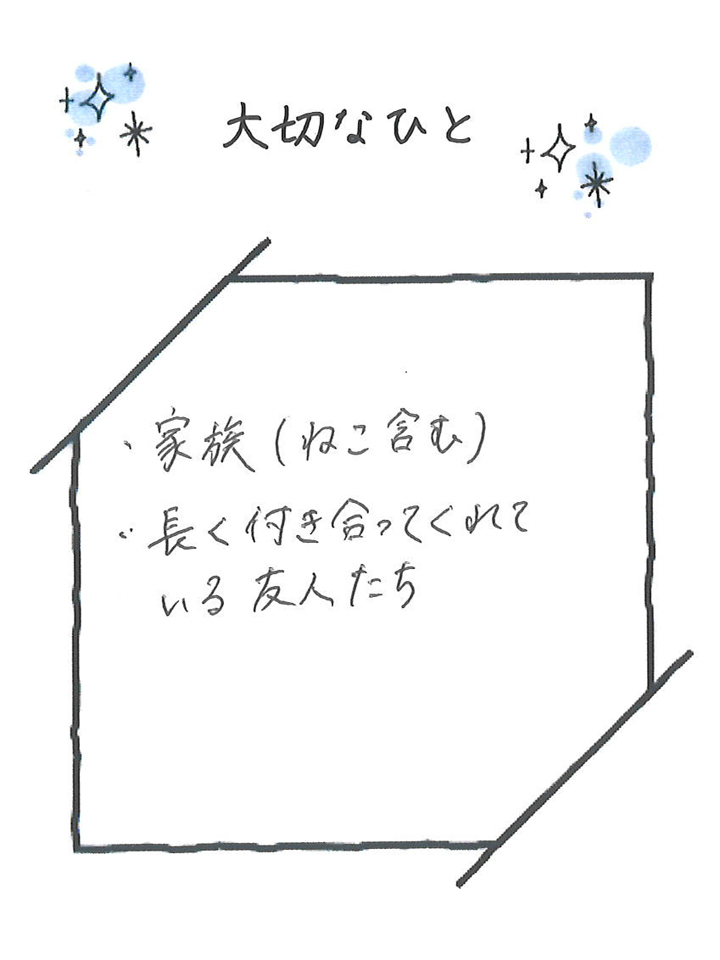 大切なひと
・家族（ねこ含む）
・長く付き合ってくれて
いる友人たち